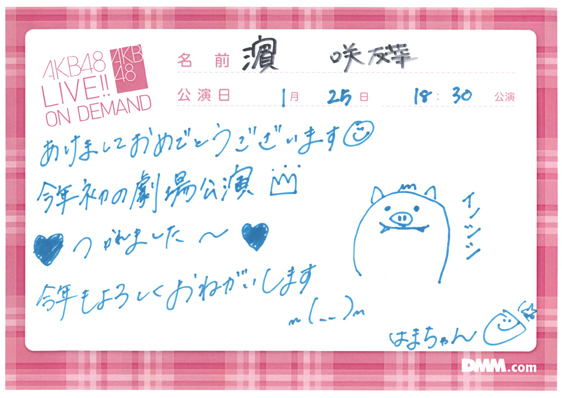 AKB48
LIVE!!
ON DEMAND
AKB
48
名前 濵 咲友菜
公演日 1月 25日 18:30 公演
あけましておめでとうございます
今年初の劇場公演
つかれました〜
今年もよろしくおねがいします
m(_ _)m
イノシシ
はまちゃん
DMM.com